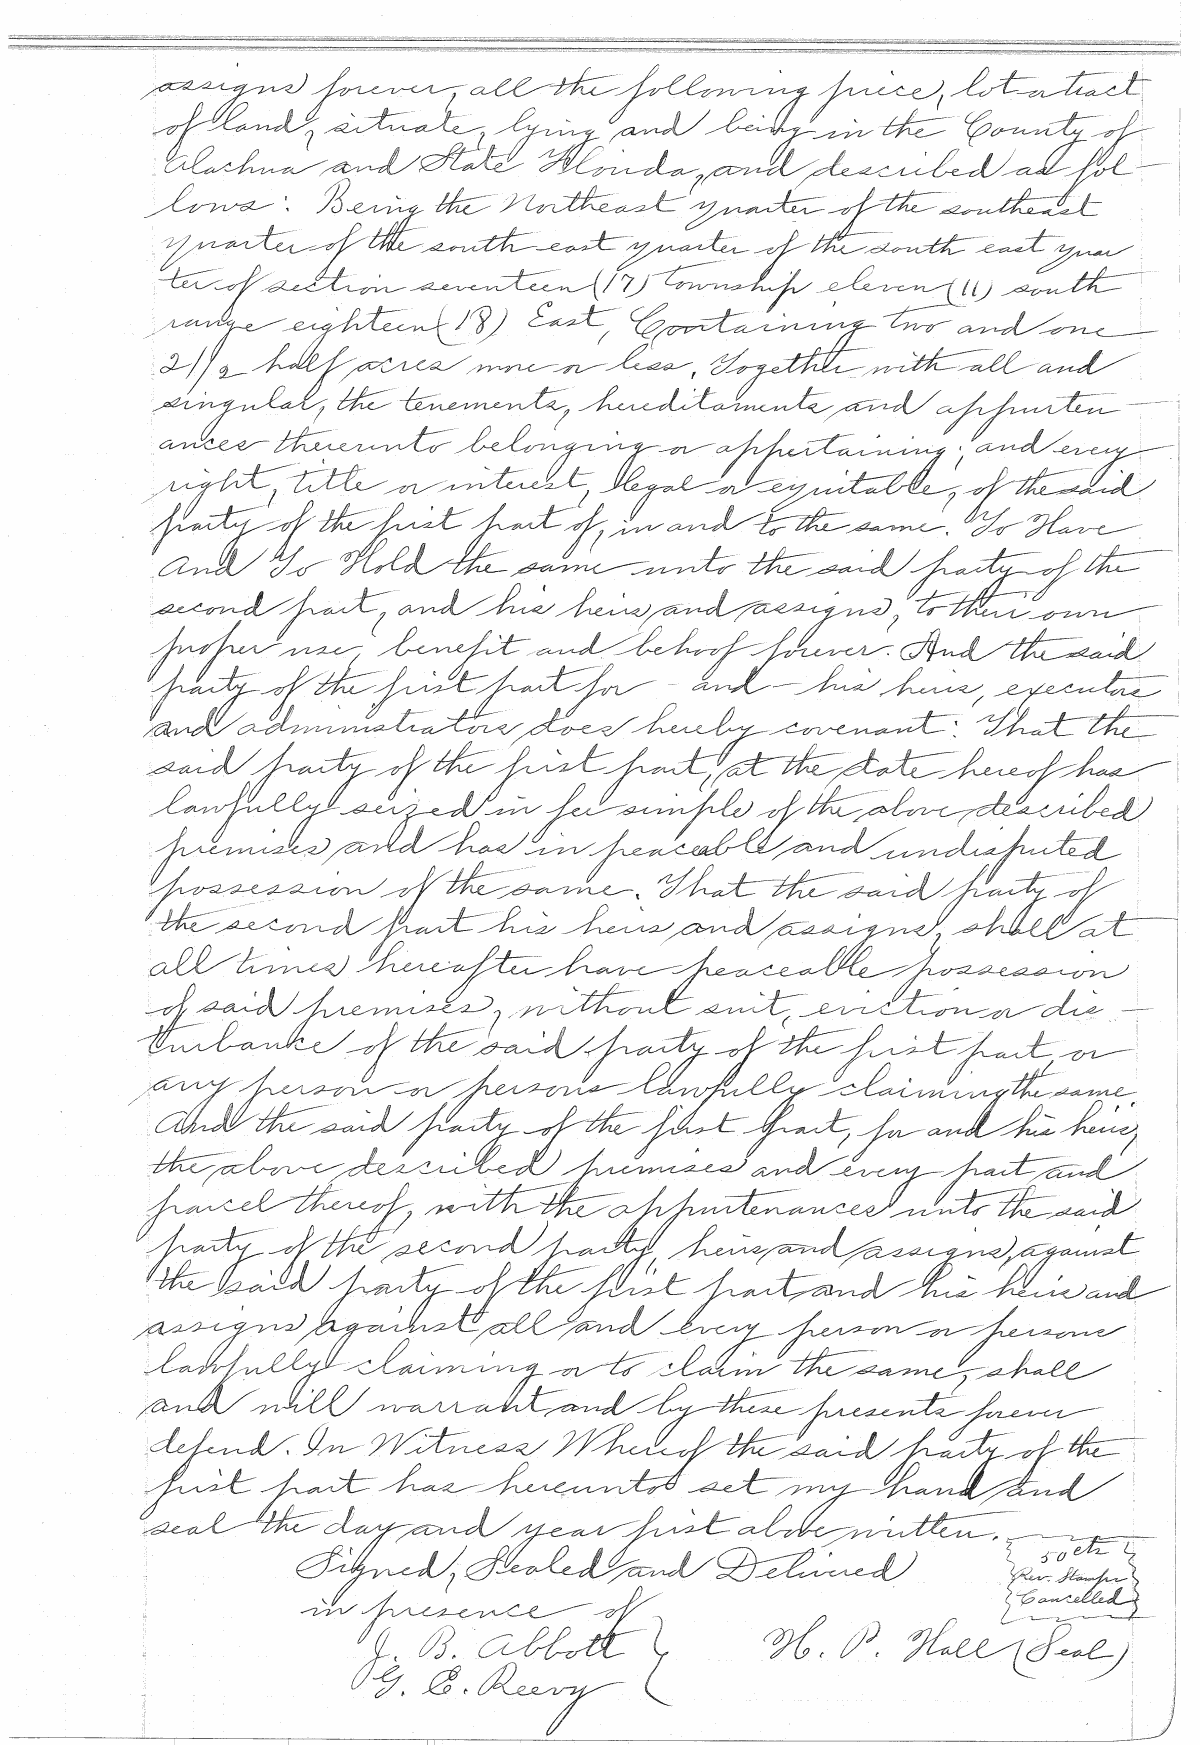 assigns forever, all the following piece, lot or tract
of land, situate, lying and being in the County of
Alachua and State Florida, and described as fol-
lows: Being the Northeast quarter of the southeast
quarter of the south east quarter of the south east quar
ter of section seventeen (17) township eleven (11) south
range eighteen (18) East, Containing two and one
2 1/2 half acres more or less. Together with all and
singular, the tenements, hereditaments and appurten
ances thereunto belonging or appertaining; and every
right, title or interest, legal or equitable, of the said
party of the first part of, in and to the same. To Have
And To Hold the same unto the said party of the
second part, and his heirs and assigns, to their own
proper use, benefit and behoof forever. And the said
party of the first part for - and - his heirs, executors
and administrators, does hereby covenant: That the
said party of the first part, at the date hereof has
lawfully seized in fee simple of the above described
premises and has in peaceable and undisputed
possession of the same. That the said party of
the second part his heirs and assigns, shall at
all times hereafter have peaceable possession
of said premises, without suit, eviction or dis -
turbance of the said party of the first part, or
any person or persons lawfully claiming the same.
And the said party of the first part, for and his heirs,
the above described premises and every part and
parcel thereof, with the appurtenances unto the said
party of the second party, heirs and assigns, against
the said party of the first part, and his heirs and
assigns against all and every person or persons
lawfully claiming or to claim the same, shall
and will warrant and by these presents forever
defend. In Witness Whereof the said party of the
first part has hereunto set my hand and
seal the day and year first above written.
50 cts
Signed, Sealed and Delivered
Rev. Stamps
Cancelled
in presence of
J. B. Abbott
H. P. Hall (Seal)
G. E. Reevy